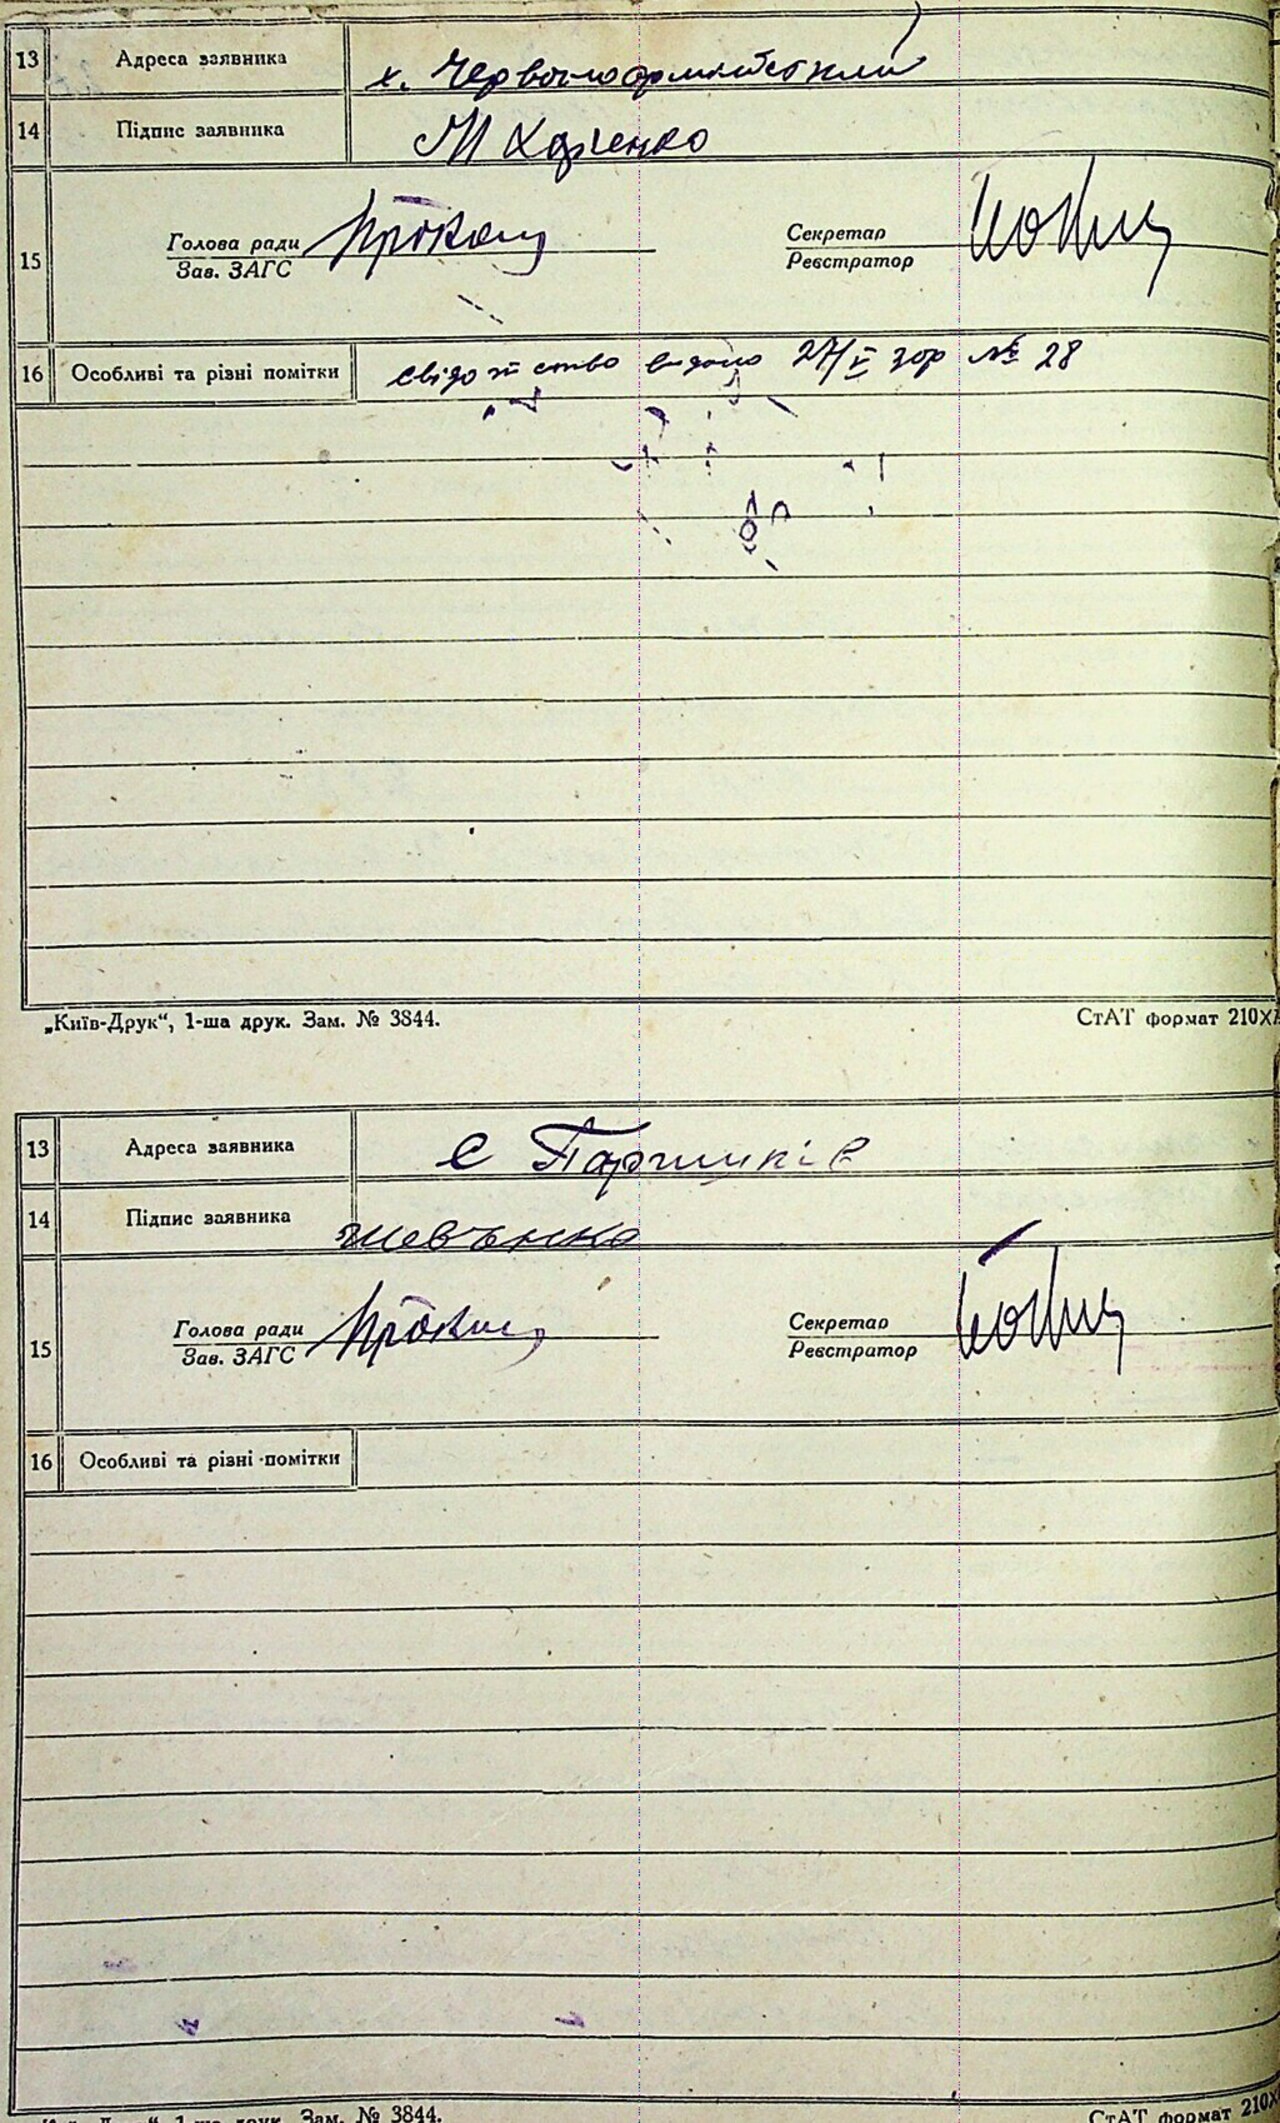 13 Адреса заявника х. Червоноармійський
14 Підпис заявника М Харченко
15 Голова ради
Зав. ЗАГС
Секретар
Реєстратор
16 Особливі та різні помітки свідоцтво видано 27/V 33р № 28
„Київ-Друк“, 1-ша друк. Зам. № 3844. СтАТ формат 210X
13 Адреса заявника С
14 Підпис заявника
15 Голова ради
Зав. ЗАГС
Секретар
Реєстратор
16 Особливі та різні помітки
1-ша друк. Зам. № 3844. СтАТ формат 210X